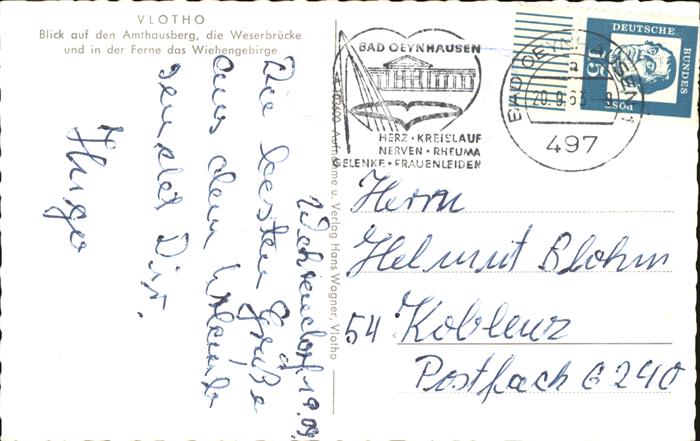 VLOTHO
Blick auf den Amthausberg, die Weserbrücke
und in der Ferne das Wiehengebirge
BAD OEYNHAUSEN
HERZ · KREISLAUF
NERVEN · RHEUMA
GELENKE · FRAUENLEIDEN
BAD OEYNHAUSEN
20.9.63
497
DEUTSCHE
BUNDES
POST
15
Aufnahme u. Verlag Hans Wagner, Vlotho
19.09.
Die besten Grüße
aus dem Urlaub
sendet Dir
Hugo
Herrn
Helmut Blohm
54 Koblenz
Postfach 6240